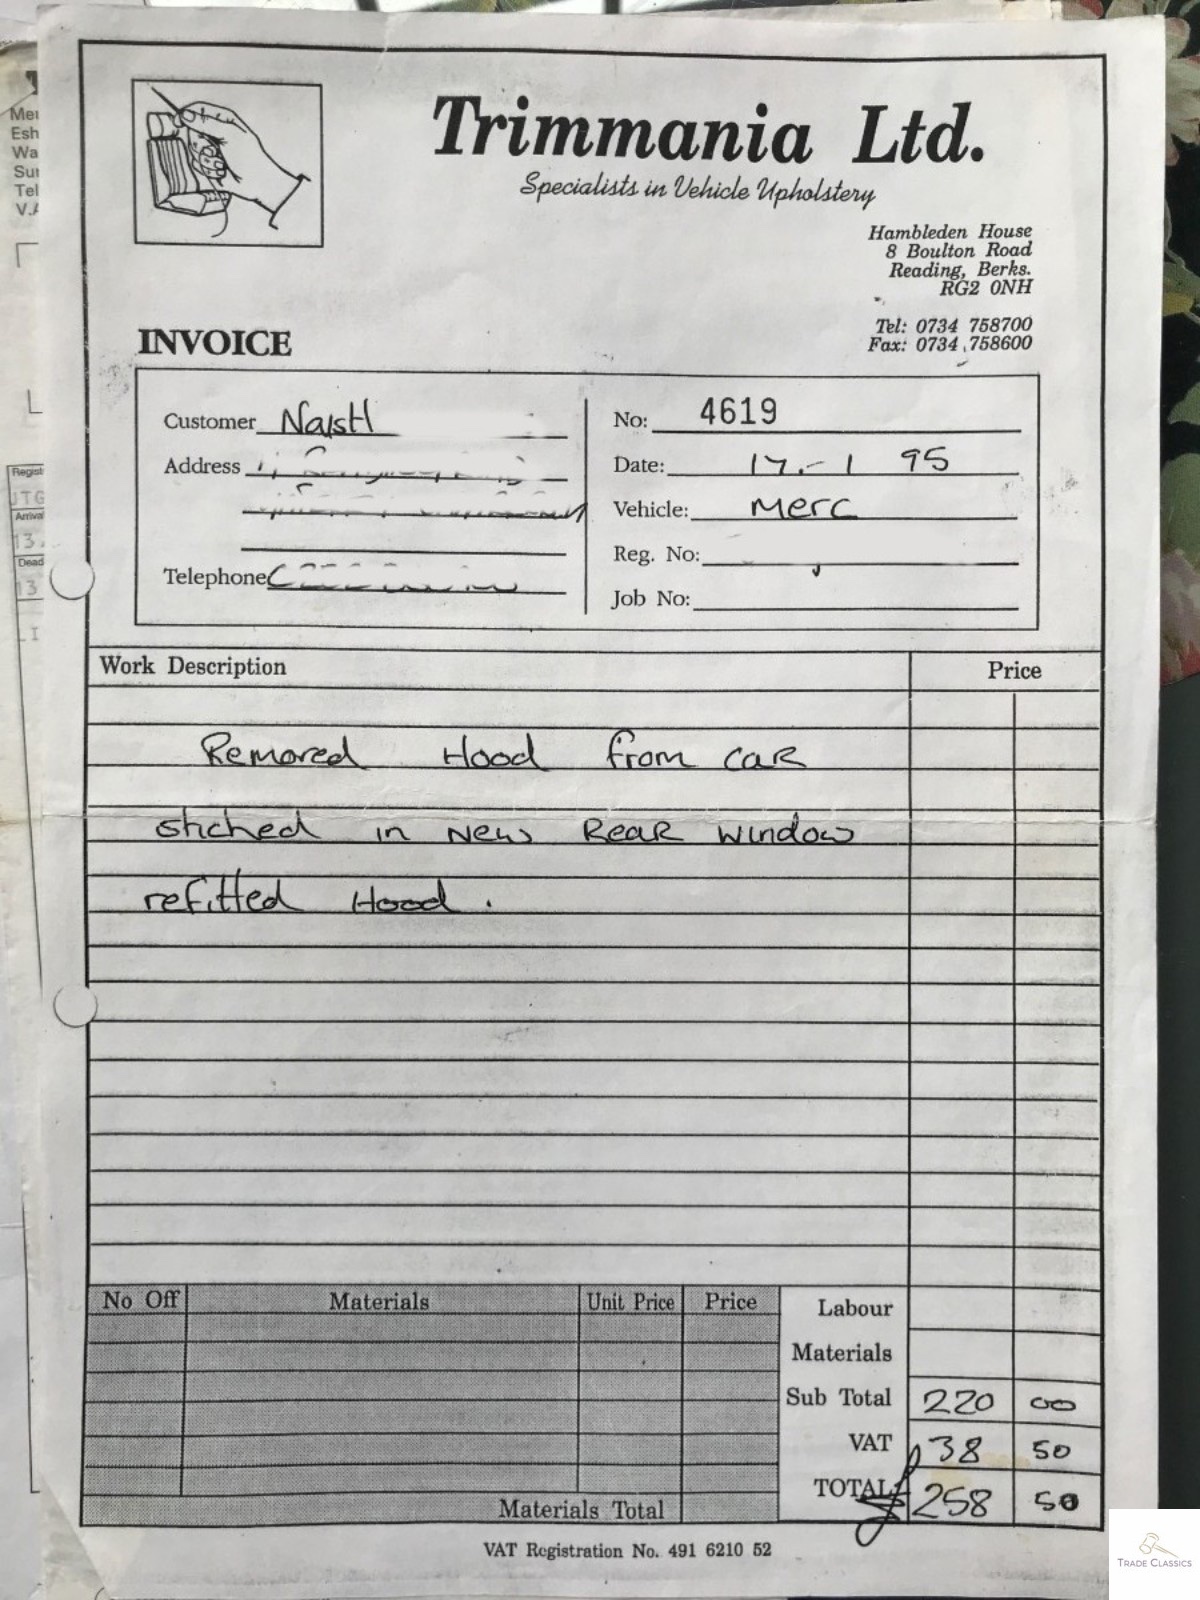 Trimmania Ltd.
Specialists in Vehicle Upholstery
Hambleden House
8 Boulton Road
Reading, Berks.
RG2 0NH
Tel: 0734 758700
Fax: 0734 758600
INVOICE
Customer
No: 4619
Address
Date: 17.-1 95
Vehicle: Merc
Reg. No:
Telephone
Job No:
Work Description Price
Removed Hood from car
stiched in new Rear window
refitted Hood.
No Off Materials Unit Price Price
Labour
Materials
Sub Total 220 00
VAT 38 50
TOTAL £258 50
Materials Total
VAT Registration No. 491 6210 52
Mer
Esh
Wa
Sur
Tel
V.A
Regist
JTG
Arriva
13.
Dead
13
LI
TRADE CLASSICS